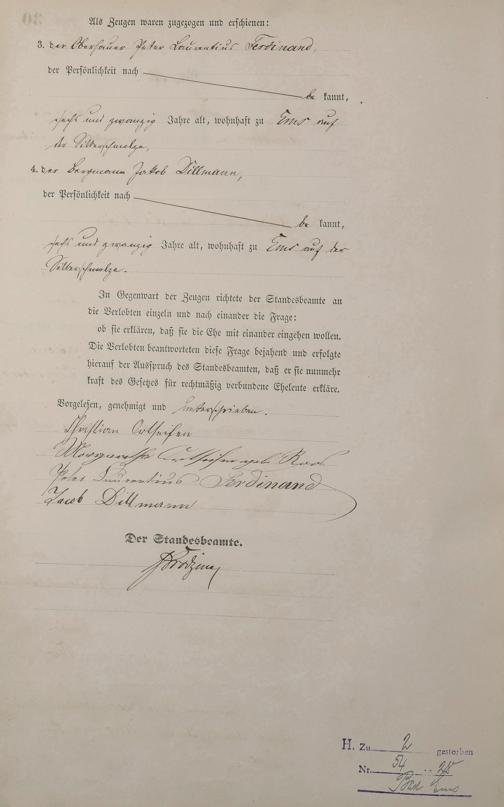 Als Zeugen waren zugezogen und erschienen:
3. der Oberhauer Peter Laurentius Ferdinand,
der Persönlichkeit nach
be kannt,
sechs und zwanzig Jahre alt, wohnhaft zu Ems auf
der Silberschmelze,
4. der Bergmann Jakob Dillmann,
der Persönlichkeit nach
be kannt,
sechs und zwanzig Jahre alt, wohnhaft zu Ems auf der
Silberschmelze.
In Gegenwart der Zeugen richtete der Standesbeamte an
die Verlobten einzeln und nach einander die Frage:
ob sie erklären, daß sie die Ehe mit einander eingehen wollen.
Die Verlobten beantworteten diese Frage bejahend und erfolgte
hierauf der Ausspruch des Standesbeamten, daß er sie nunmehr
kraft des Gesetzes für rechtmäßig verbundene Eheleute erkläre.
Vorgelesen, genehmigt und unterschrieben.
Christian Ortseifen
Margaretha Ortseifen geb. Roos
Peter Laurentius Ferdinand
Jacob Dillmann
Der Standesbeamte.
H. Zu 2 gestorben
Nr. 54 25
Bad Ems